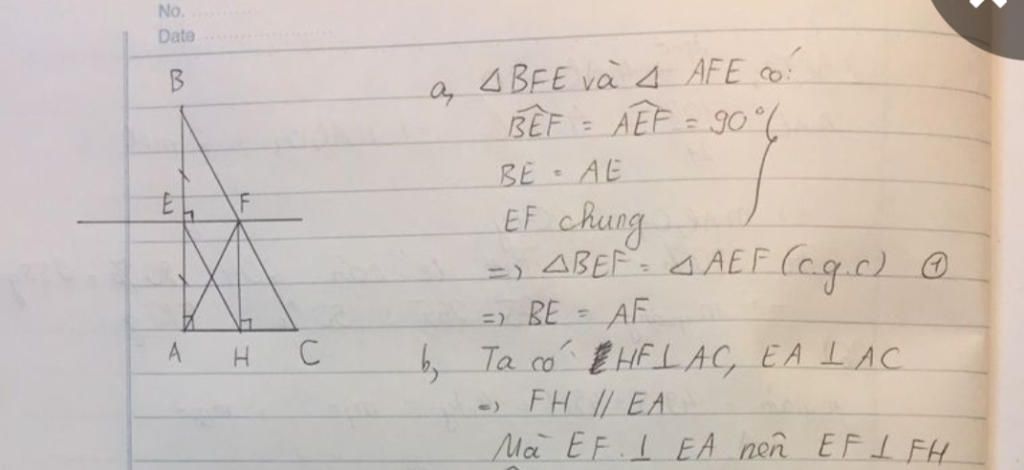 No.
Date
B
E F
A H C
a, △BFE và △ AFE có:
BÊF = AÊF = 90°
BE = AE
EF chung
=> △BEF = △AEF (c.g.c) ①
=> BE = AF
b, Ta có HF⊥AC, EA ⊥ AC
=> FH // EA
Mà EF ⊥ EA nên EF ⊥ FH